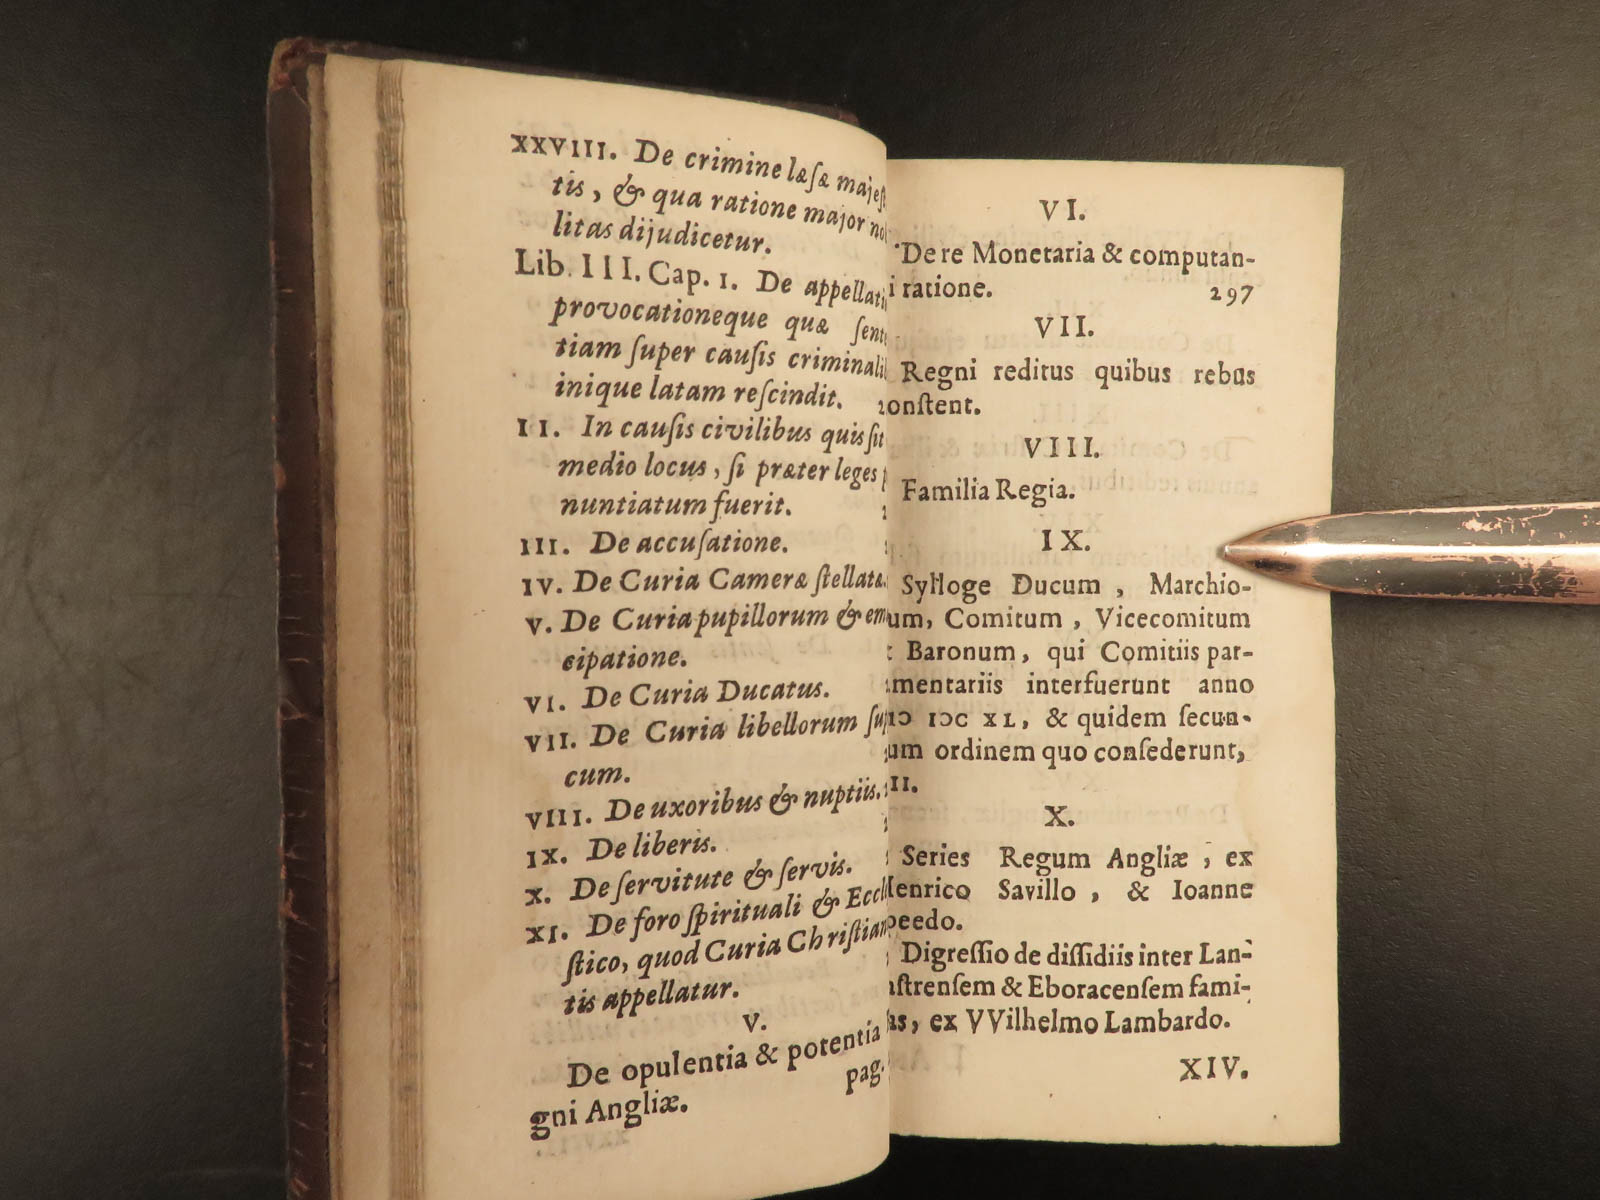 XXVIII. De crimine læſæ majeſ
tis, & qua ratione major no
litas dijudicetur.
Lib. III. Cap. I. De appellati
provocationeque quæ ſent
tiam ſuper cauſis criminali
inique latam reſcindit.
II. In cauſis civilibus quis ſit
medio locus, ſi præter leges p
nuntiatum fuerit.
III. De accuſatione.
IV. De Curia Cameræ ſtellatæ.
V. De Curia pupillorum & em
cipatione.
VI. De Curia Ducatus.
VII. De Curia libellorum ſup
cum.
VIII. De uxoribus & nuptiis.
IX. De liberis.
X. De ſervitute & ſervis.
XI. De foro ſpirituali & Eccl
ſtico, quod Curia Chriſtian
tis appellatur.
V.
De opulentia & potentia
gni Angliæ. pag.
VI.
De re Monetaria & computan-
i ratione. 297
VII.
Regni reditus quibus rebus
onſtent.
VIII.
Familia Regia.
IX.
Sylloge Ducum, Marchio-
um, Comitum, Vicecomitum
Baronum, qui Comitiis par-
mentariis interfuerunt anno
IƆ IƆC XL, & quidem ſecun-
um ordinem quo conſederunt,
II.
X.
Series Regum Angliæ, ex
Henrico Savillo, & Ioanne
peedo.
Digreſſio de diſſidiis inter Lan-
aſtrenſem & Eboracenſem fami-
as, ex VVilhelmo Lambardo.
XIV.